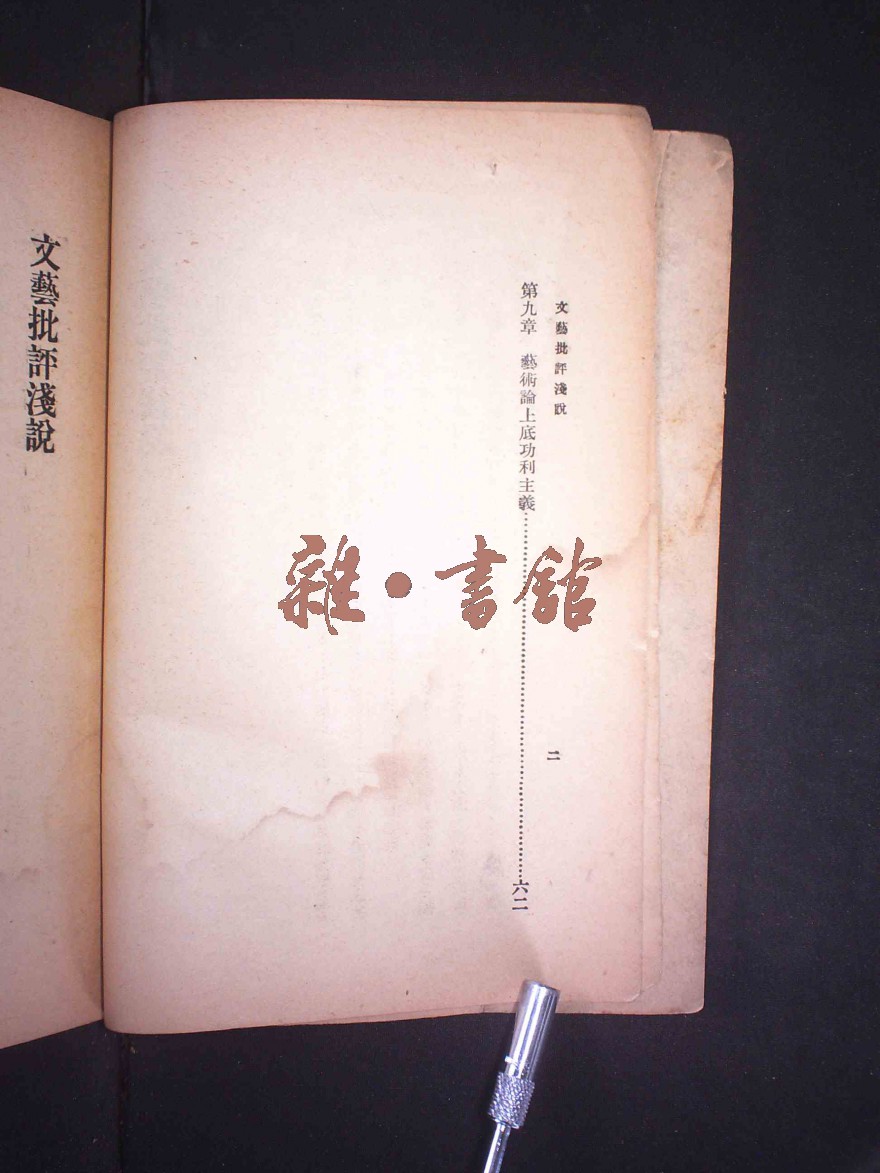 文藝批評淺說
第九章 藝術論上底功利主義……六二
二
文藝批評淺說
雜·書館